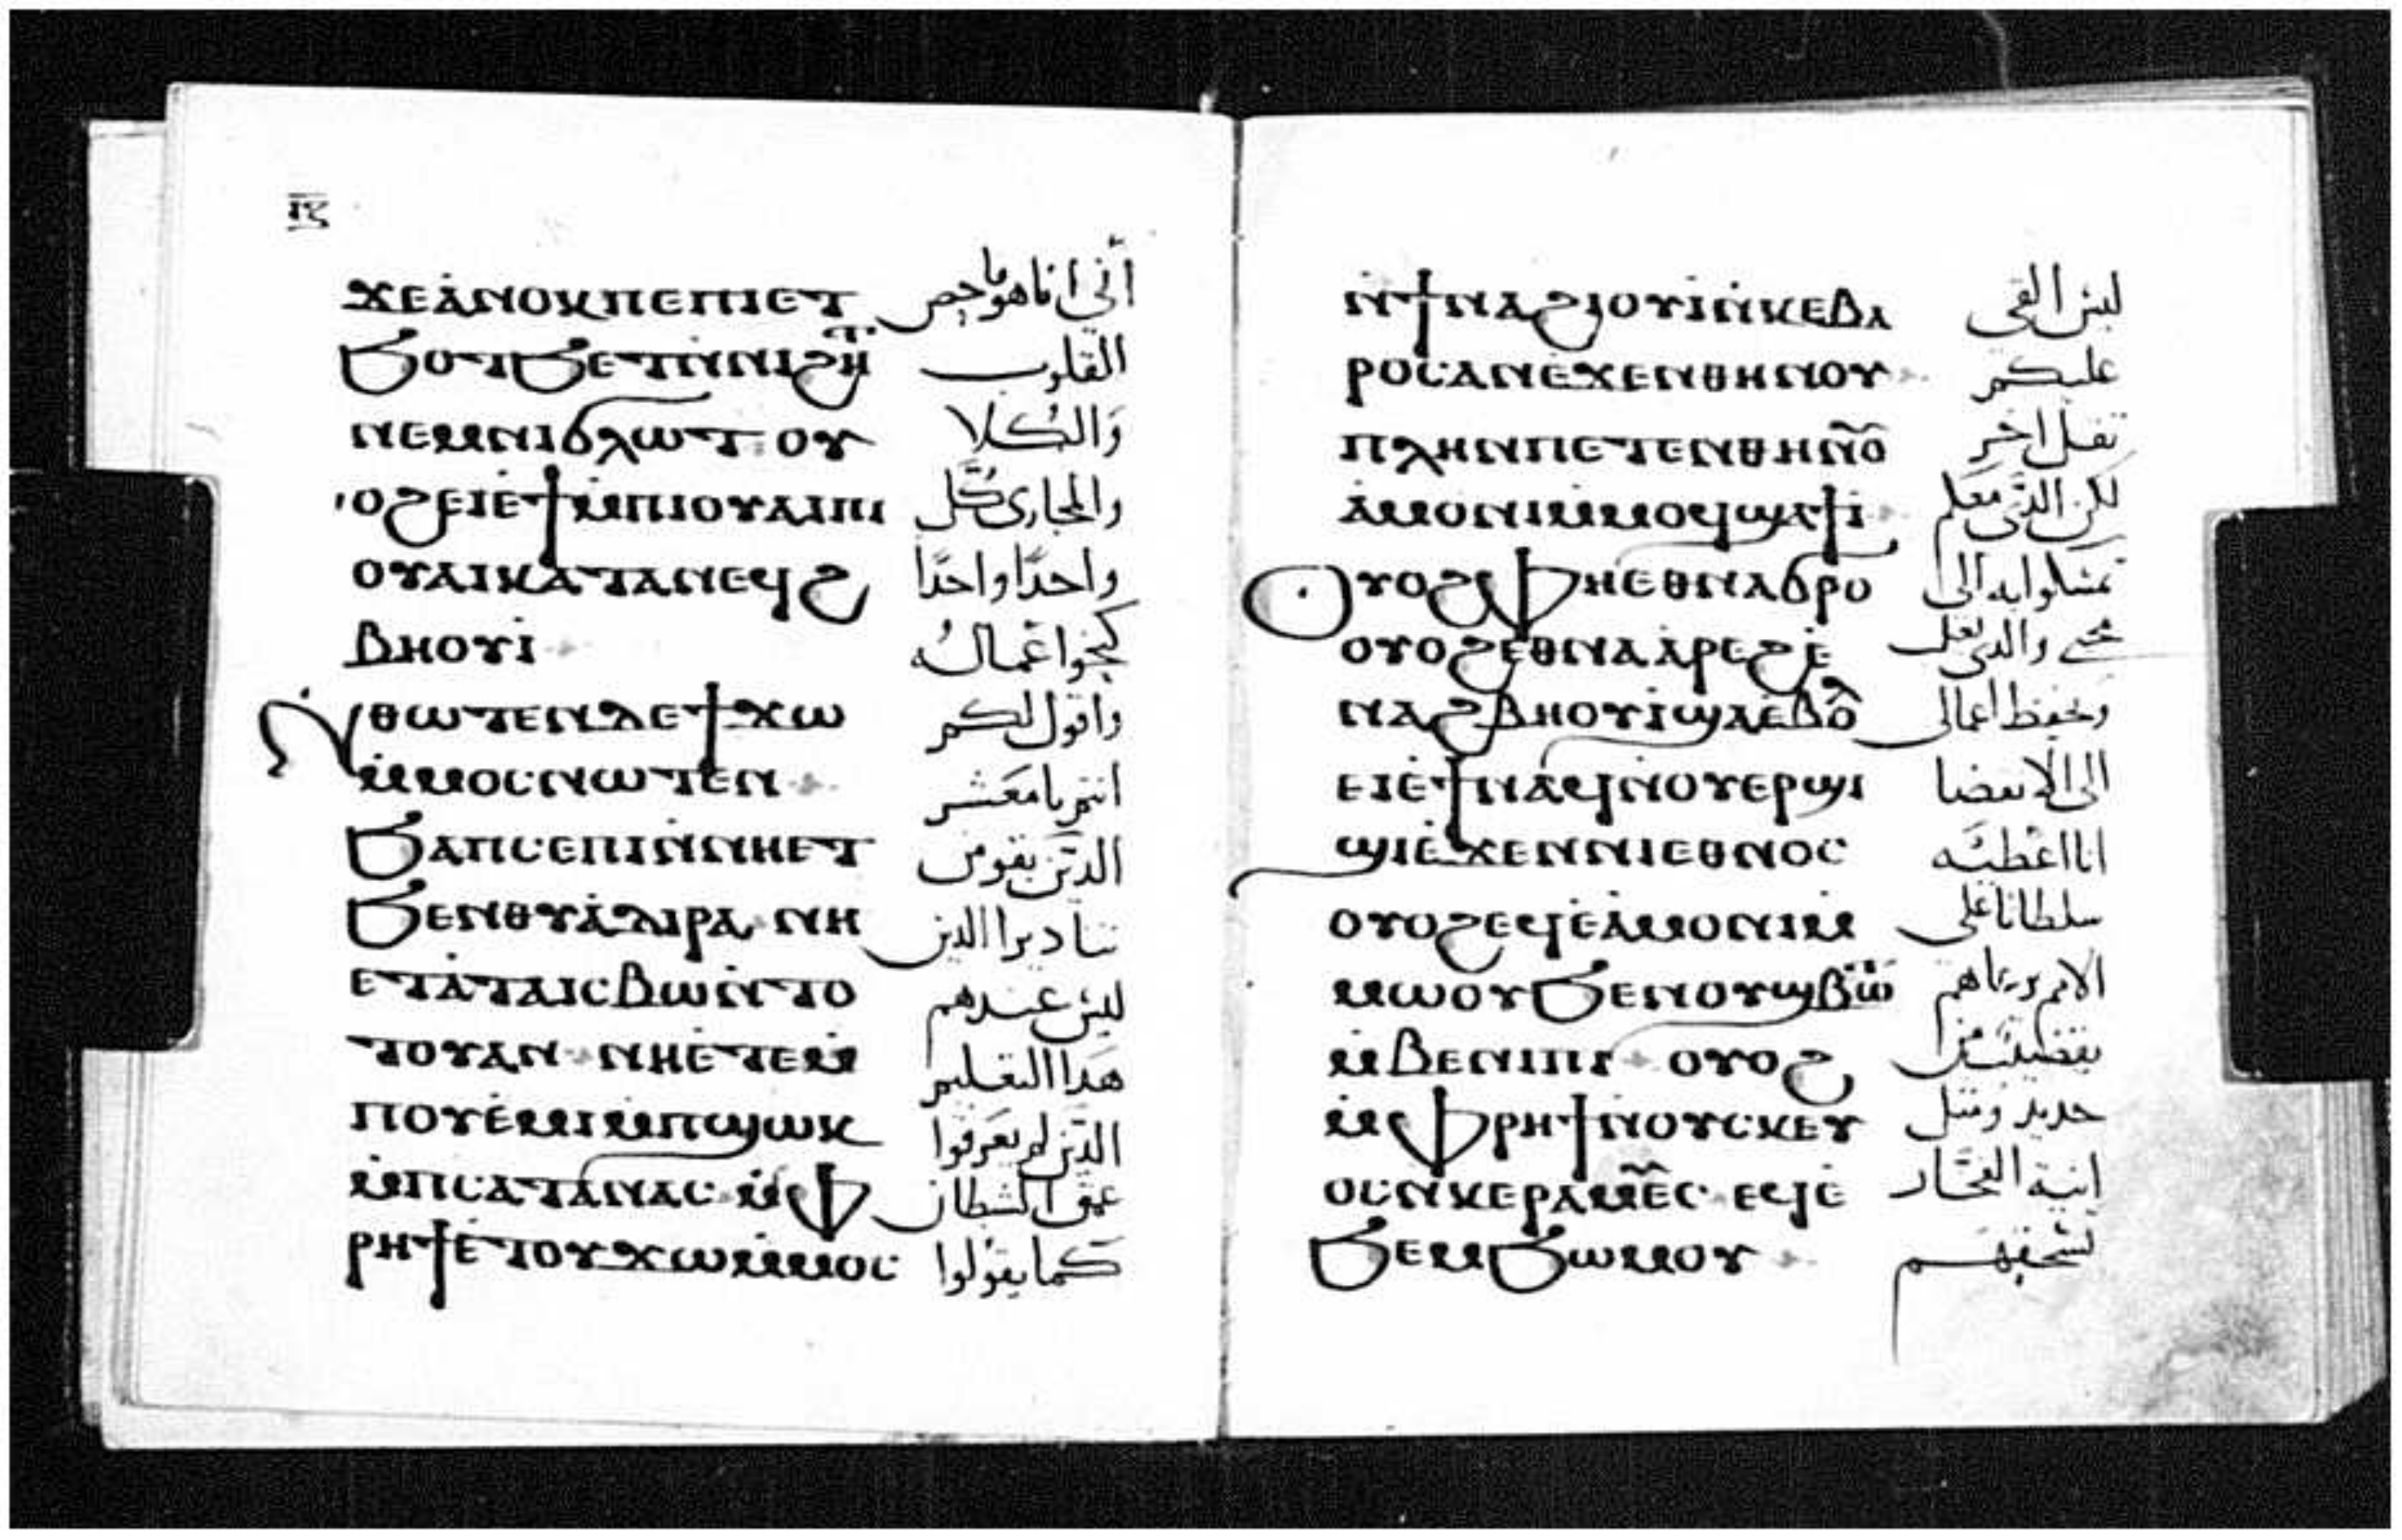 ⲓ̅ⲍ̅
ϫⲉⲁ̀ⲛⲟⲕⲡⲉⲡⲓⲉⲧ انى انا هو فاحص
ϧⲟⲧϧⲉⲧⲛ̀ⲛⲓϩⲏⲧ القلوب
ⲛⲉⲙⲛⲓϭⲗⲱⲧ ⲟⲩ والكلا
ⲟϩⲉⲓⲉ̀ϯⲙ̀ⲡⲓⲟⲩⲁⲓⲡⲓ والمجازى كل
ⲟⲩⲁⲓⲕⲁⲧⲁⲛⲉϥϩ واحدًا واحدًا
ⲃⲏⲟⲩⲓ̀ كنحوا اعماله
ⲛ̀ⲑⲱⲧⲉⲛⲇⲉϯϫⲱ واقول لكم
ⲙ̀ⲙⲟⲥⲛⲱⲧⲉⲛ انتم يا معشر
ϧⲁⲡⲥⲉⲡⲓⲛ̀ⲛⲏⲉⲧ
ϧⲉⲛⲑⲩⲁ̀ⲇⲓⲣⲁ ⲛⲏ
ⲉⲧⲁ̀ⲧⲁⲓⲥⲃⲱⲛ̀ⲧⲟ ليس عندهم
ⲧⲟⲩⲁⲛ ⲛⲏⲉ̀ⲧⲉⲙ̀ هدا التعليم
ⲡⲟⲩⲉ̀ⲙⲓⲙ̀ⲡϣⲱⲕ الدين لم يعرفوا
ⲙ̀ⲡⲥⲁⲧⲁⲛⲁⲥ ⲙ̀ⲫ عمق الشيطان
ⲣⲏϯⲉ̀ⲧⲟⲩϫⲱⲙ̀ⲙⲟⲥ كما يقولوا
ⲛ̀ϯⲛⲁϩⲓⲟⲩⲓ̀ⲛ̀ⲕⲉⲃⲁ ليس القى
ⲣⲟⲥⲁⲛⲉ̀ϫⲉⲛⲑⲏⲛⲟⲩ عليكم
ⲡⲗⲏⲛⲡⲉⲧⲉⲛⲑⲏⲛⲟ تقل اخر
ⲁ̀ⲙⲟⲛⲓⲙ̀ⲙⲟϥϣⲁϯⲓ̀ لكن الدى معكم
ⲟⲩⲟϩⲫⲏⲉⲑⲛⲁϭⲣⲟ تمسكوا به الى
ⲟⲩⲟϩⲉⲑⲛⲁⲁ̀ⲣⲉϩⲉ̀
ⲛⲁϩⲃⲏⲟⲩⲓ̀ϣⲁⲉ̀ⲃⲟⲗ ويحفظ اعمالى
ⲉⲓⲉ̀ϯⲛⲁϥⲛ̀ⲟⲩⲉⲣϣⲓ الى الانقضا
ϣⲓⲉ̀ϫⲉⲛⲛⲓⲉⲑⲛⲟⲥ انا اعطيه
ⲟⲩⲟϩⲉϥⲉ̀ⲁ̀ⲙⲟⲛⲓⲙ̀ سلطانا على
ⲙⲱⲟⲩϧⲉⲛⲟⲩϣⲃⲱ الامم ويرعاهم
ⲙ̀ⲃⲉⲛⲓⲡⲓ ⲟⲩⲟϩ بقضيب من
ⲙ̀ⲫⲣⲏϯⲛ̀ⲟⲩⲥⲕⲉⲩ حديد ومتل
ⲟⲥⲛ̀ⲕⲉⲣⲁⲙⲉⲥ ⲉϥⲉ̀ انية الفخار
ϧⲉⲙϧⲱⲙⲟⲩ يسحقهم